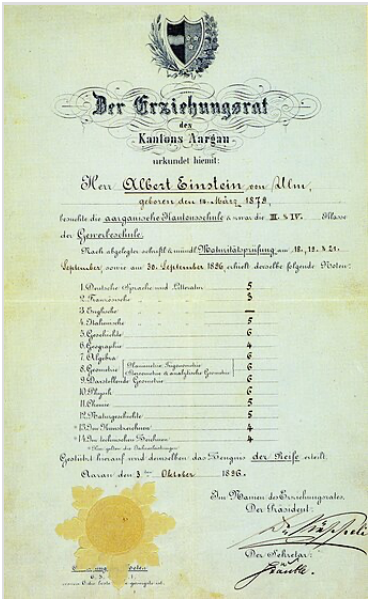 Der Erziehungsrat
des
Kantons Aargau
urkundet hiemit:
Herr Albert Einstein von Ulm,
geboren den 14. März 1879,
besuchte die aargauische Kantonsschule & zwar die III. & IV. Klasse
der Gewerbeschule.
Nach abgelegter schriftl. & mündl. Maturitätsprüfung am 18., 19. & 21.
September, sowie am 30. September 1896, erhielt derselbe folgende Noten:
1. Deutsche Sprache und Litteratur 5
2. Französische " " " 3
3. Englische " " " —
4. Italienische " " " 5
5. Geschichte 6
6. Geographie 4
7. Algebra 6
8. Geometrie (Planimetrie, Trigonometrie, Stereometrie & analytische Geometrie) 6
9. Darstellende Geometrie 6
10. Physik 6
11. Chemie 5
12. Naturgeschichte 5
*13. Im Kunstzeichnen 4
*14. Im technischen Zeichnen 4
* Hier gelten die Jahresleistungen.
Gestützt hierauf wird demselben das Zeugnis der Reife erteilt.
Aarau den 3ten Oktober 1896.
Im Namen des Erziehungsrates,
Der Präsident:
Der Sekretär: